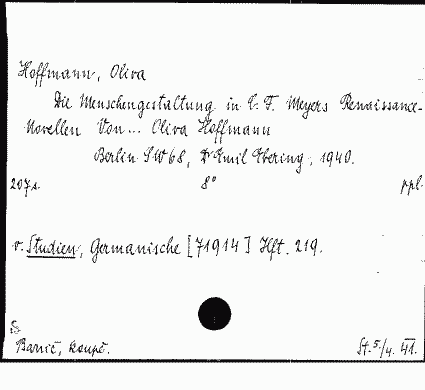 Hoffmann, Oliva
Die Menschengestaltung in C. F. Meyers Renaissance-
Novellen Von... Oliva Hoffmann
Berlin SW 68, Dr Emil Ebering, 1940.
207 s. 8° ppl.
v. Studien, Germanische [71914] Hft. 219.
Barnič, koupě. St. 5/4. 41.